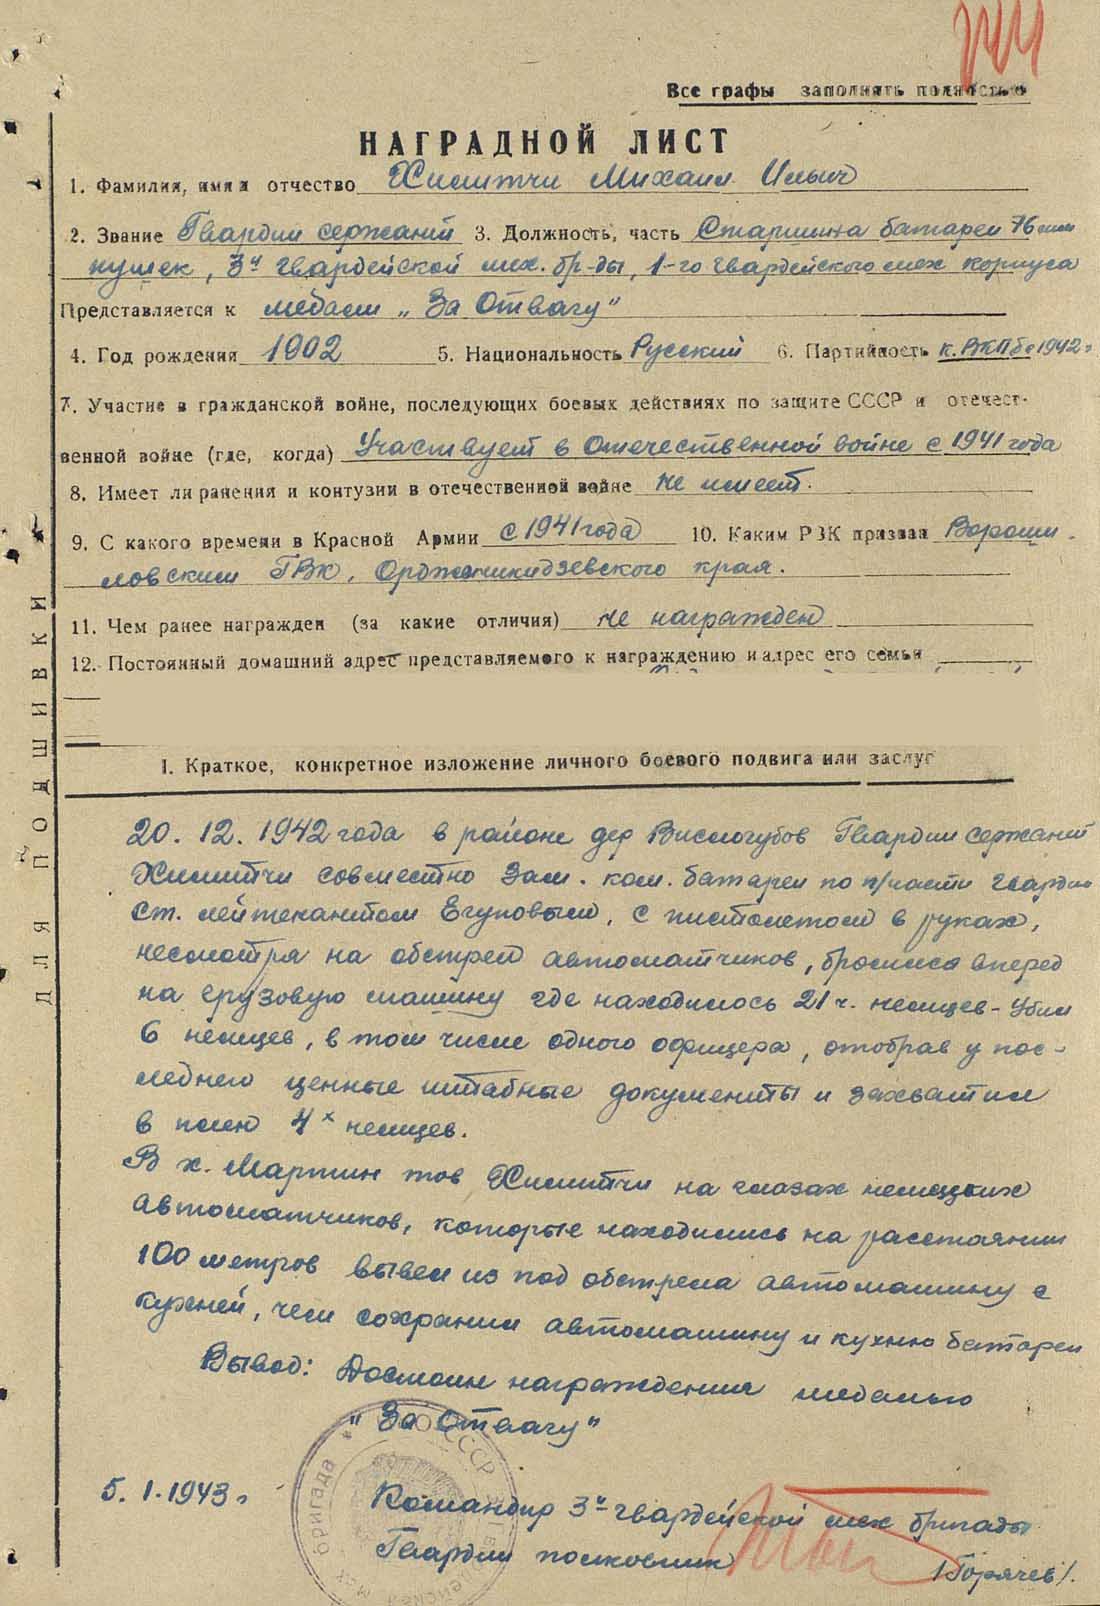 Все графы заполнять полностью
НАГРАДНОЙ ЛИСТ
1. Фамилия, имя и отчество Хишитчи Михаил Ильич
2. Звание Гвардии сержант 3. Должность, часть Старшина батареи 76 мм
пушек, 3й гвардейской мех. бр-ды, 1-го гвардейского мех корпуса
Представляется к медали „За Отвагу"
4. Год рождения 1902 5. Национальность Русский 6. Партийность к. ВКПб с 1942 г
7. Участие в гражданской войне, последующих боевых действиях по защите СССР и отечест-
венной войне (где, когда) Участвует в Отечественной войне с 1941 года
8. Имеет ли ранения и контузии в отечественной войне не имеет.
9. С какого времени в Красной Армии с 1941 года 10. Каким РВК призван Вороши-
ловским ГВК, Орджоникидзевского края.
11. Чем ранее награжден (за какие отличия) не награжден
12. Постоянный домашний адрес представляемого к награждению и адрес его семьи
I. Краткое, конкретное изложение личного боевого подвига или заслуг
20. 12. 1942 года в районе дер Вислогубов Гвардии сержант
Хишитчи совместно Зам. ком. батареи по п/части гвардии
ст. лейтенантом Егуповым, с пистолетом в руках,
несмотря на обстрел автоматчиков, бросился вперед
на грузовую машину где находилось 21 ч. немцев - Убил
6 немцев, в том числе одного офицера, отобрав у пос-
леднего ценные штабные документы и захватил
в плен 4х немцев.
В х. Мартин тов Хишитчи на глазах немецких
автоматчиков, которые находились на расстоянии
100 метров вывел из под обстрела автомашину с
кухней, чем сохранил автомашину и кухню батареи
Вывод: Достоин награждения медалью
„За Отвагу"
5. 1. 1943 г
Командир 3й гвардейской мех бригады
Гвардии полковник /Горячев/.
ДЛЯ ПОДШИВКИ